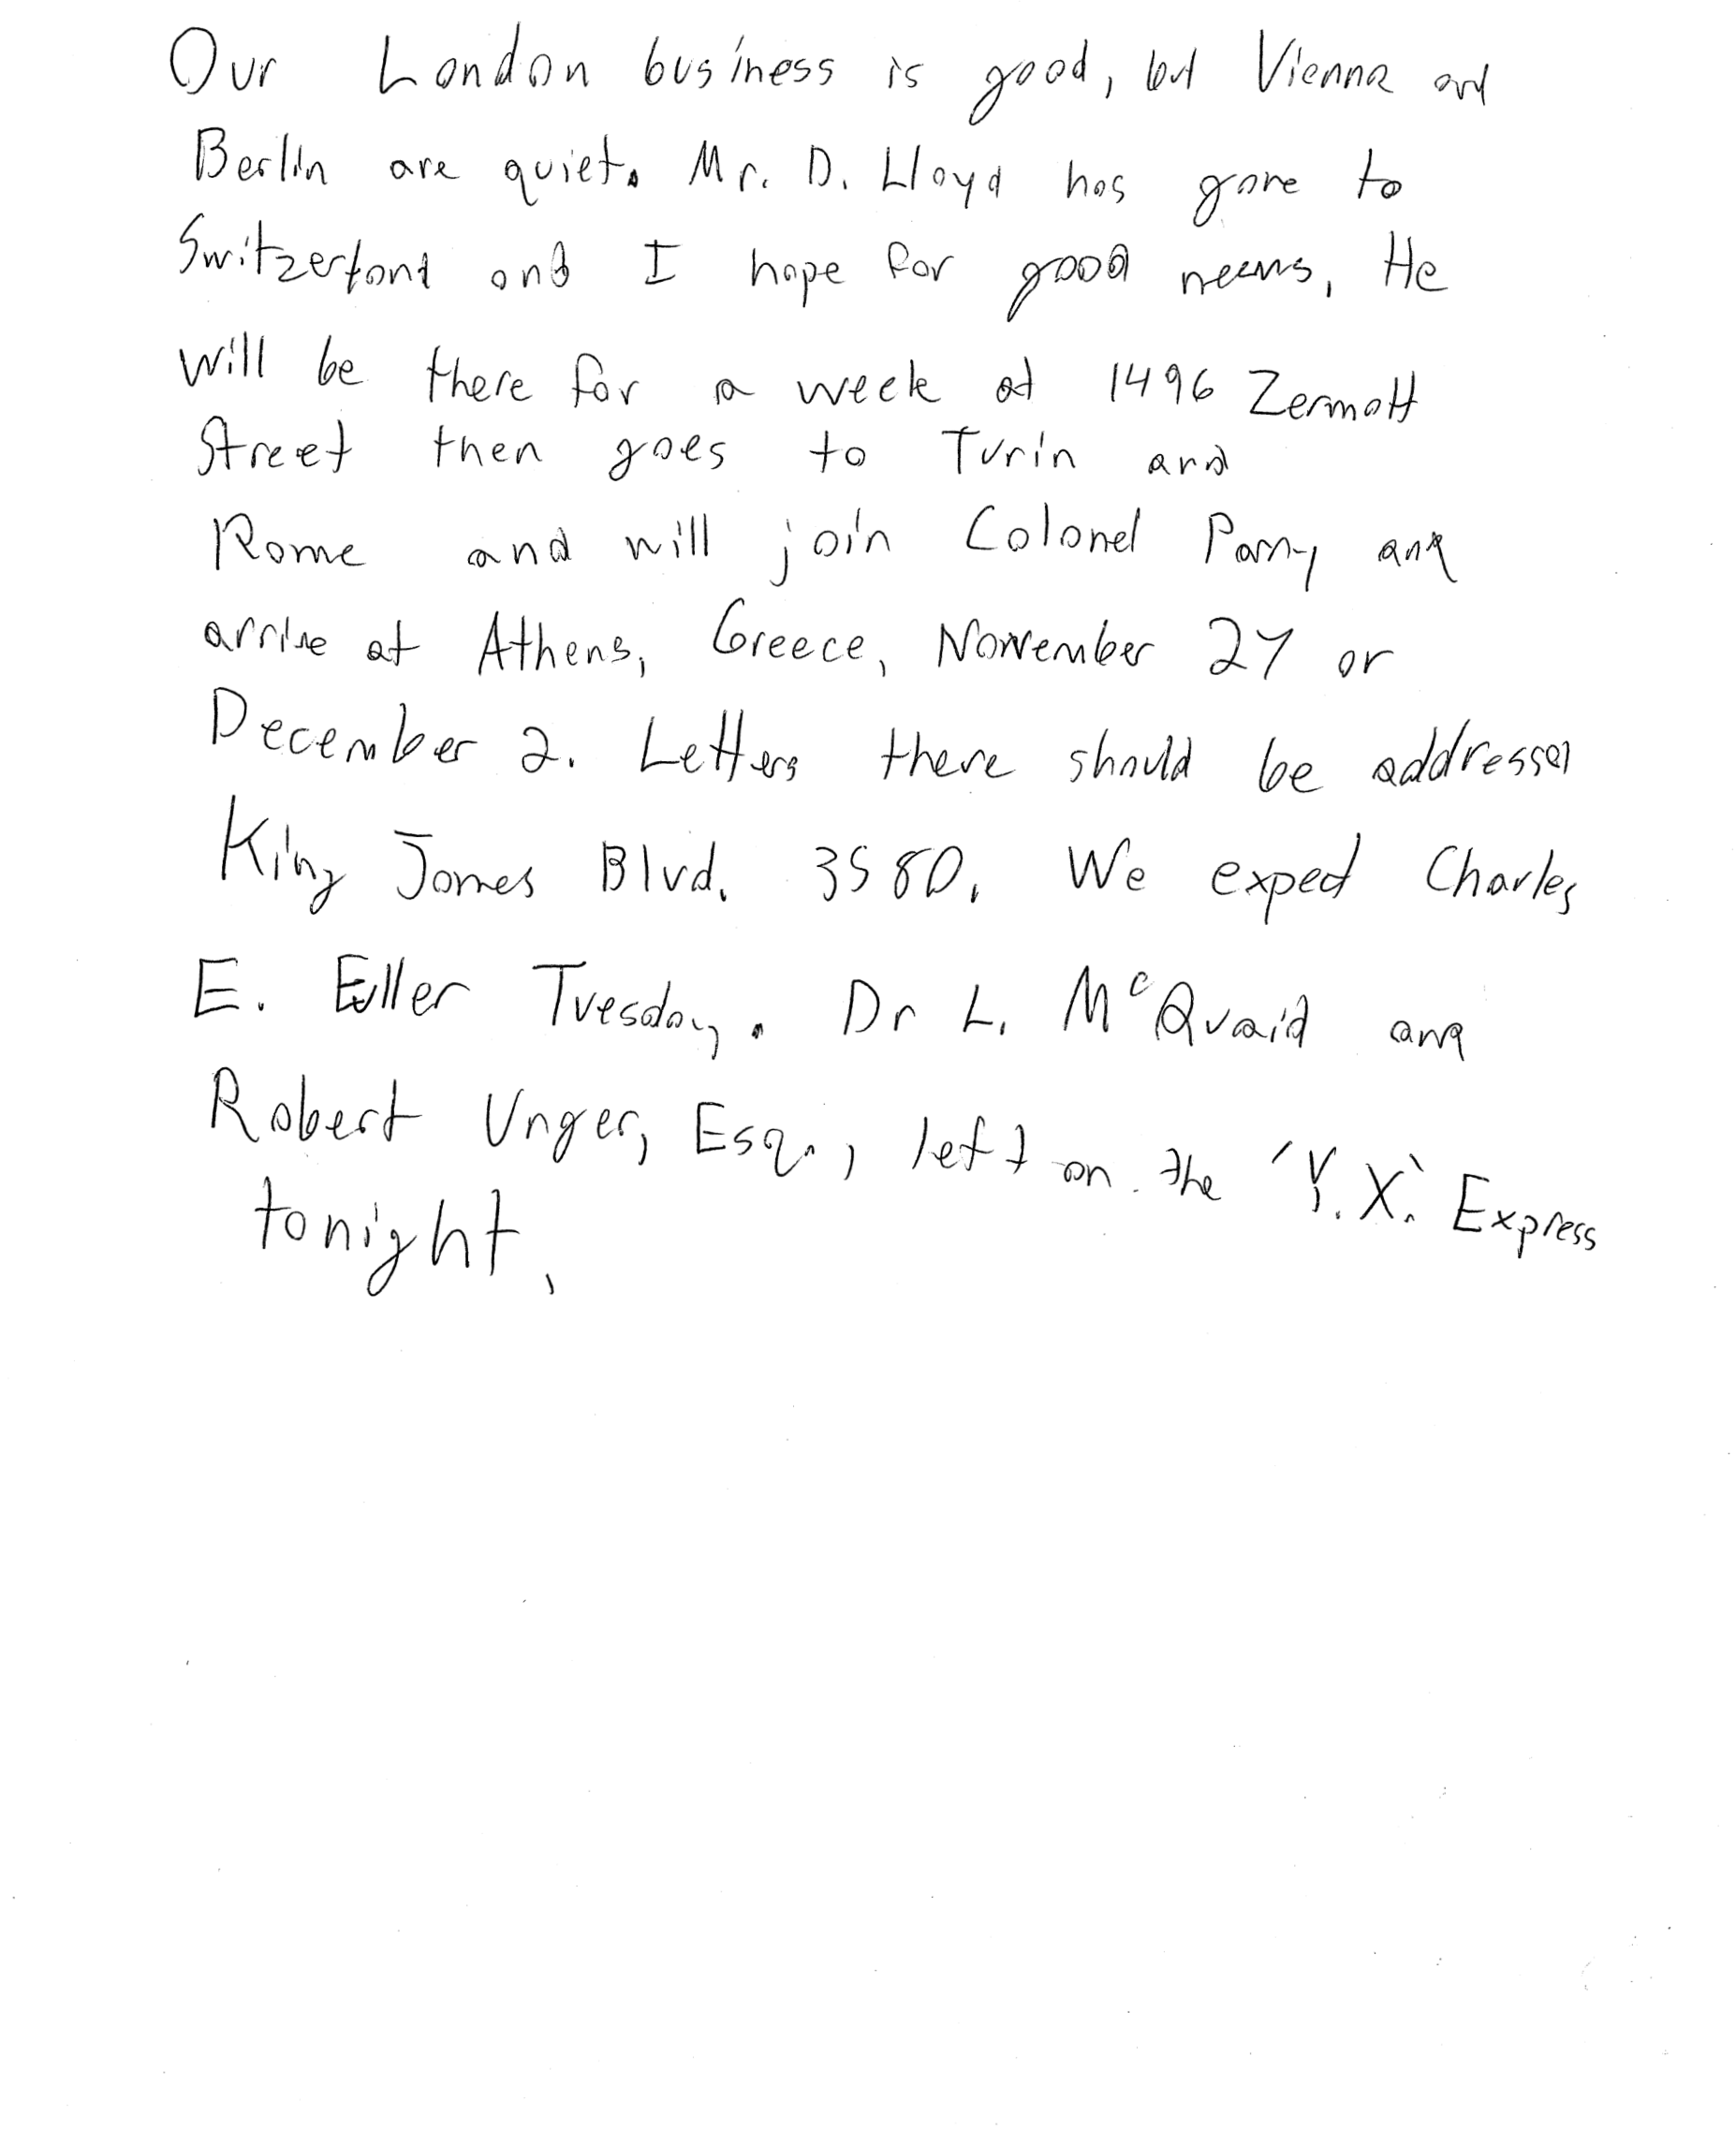 Our London business is good, but Vienna and
Berlin are quiet. Mr. D. Lloyd has gone to
Switzerland and I hope for good news. He
will be there for a week at 1496 Zermott
Street then goes to Turin and
Rome and will join Colonel Parry and
arrive at Athens, Greece, November 27 or
December 2. Letters there should be addressed
King James Blvd. 3580. We expect Charles
E. Fuller Tuesday. Dr L. McQuaid and
Robert Unger, Esq., left on the 'Y.X.' Express
tonight.